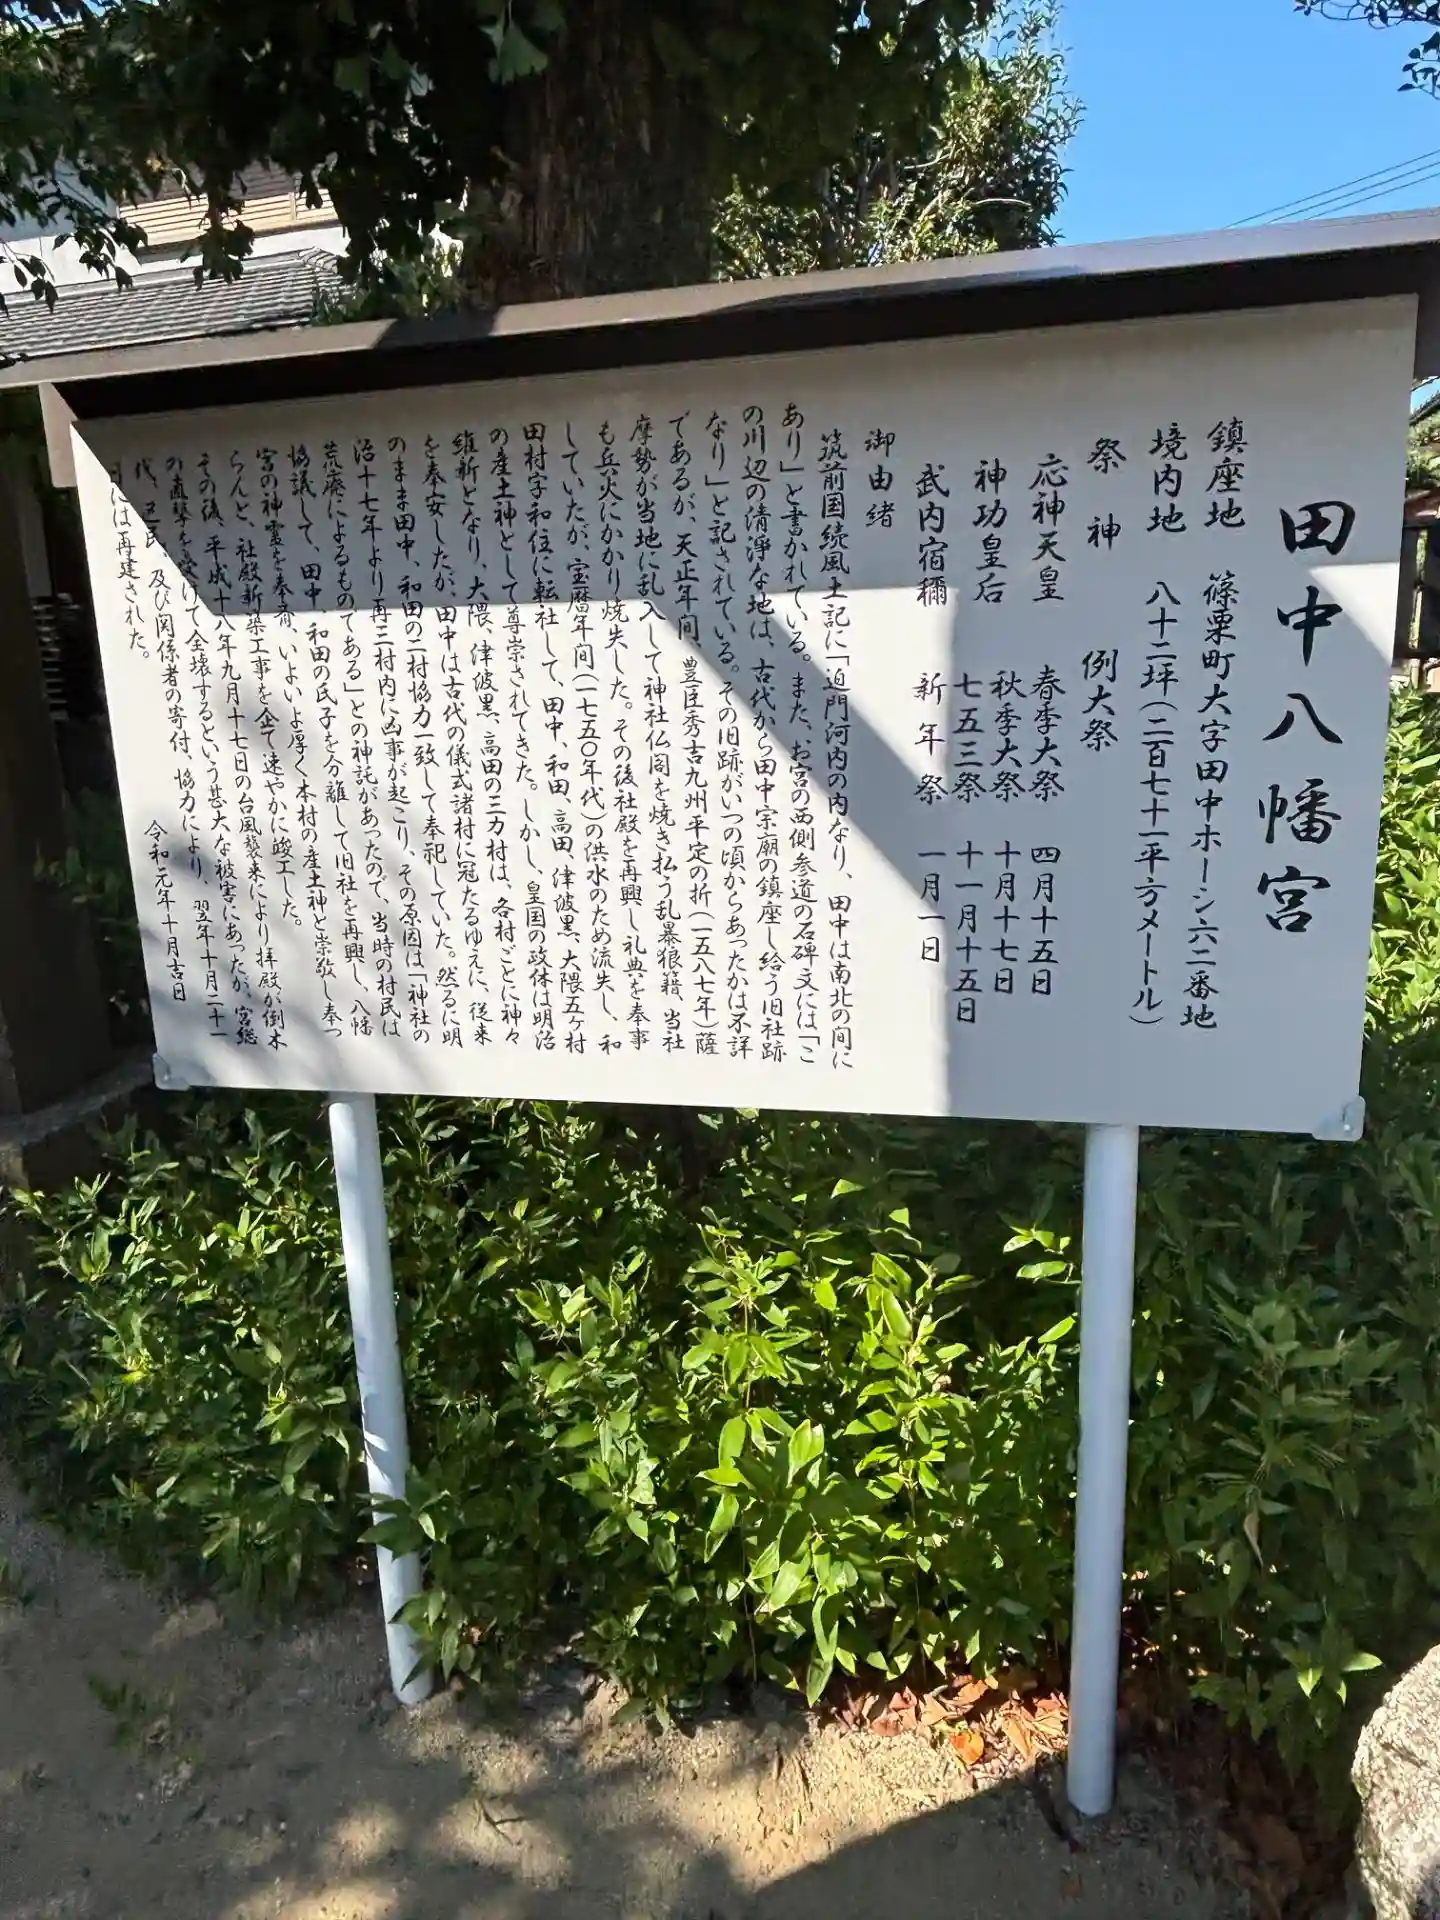 田中八幡宮
鎮座地 篠栗町大字田中ホーシ六二番地
境内地 八十二坪(二百七十一平方メートル)
祭神 例大祭
応神天皇 春季大祭 四月十五日
神功皇后 秋季大祭 十月十七日
七五三祭 十一月十五日
武内宿禰 新年祭 一月一日
御由緒
筑前国続風土記に「迫門河内の内なり、田中は南北の間に
あり」と書かれている。また、お宮の西側参道の石碑文には「こ
の川辺の清浄な地は、古代から田中宗廟の鎮座し給う旧社跡
なり」と記されている。その旧跡がいつの頃からあったかは不詳
であるが、天正年間、豊臣秀吉九州平定の折(一五八七年)薩
摩勢が当地に乱入して神社仏閣を焼き払う乱暴狼籍、当社
も兵火にかかり焼失した。その後社殿を再興し礼典を奉事
していたが、宝暦年間(一七五〇年代)の洪水のため流失し、和
田村字和住に転社して、田中、和田、高田、津波黒、大隈五ヶ村
の産土神として尊崇されてきた。しかし、皇国の政体は明治
維新となり、大隈、津波黒、高田の三カ村は、各村ごとに神々
を奉安したが、田中は古代の儀式諸村に冠たるゆえに、従来
のまま田中、和田の二村協力一致して奉祀していた。然るに明
治十七年より再三村内に凶事が起こり、その原因は「神社の
荒廃によるものである」との神託があったので、当時の村民は
協議して、田中、和田の氏子を分離して旧社を再興し、八幡
宮の神霊を奉斎、いよいよ厚く本村の産土神と崇敬し奉つ
らんと、社殿新築工事を企て速やかに竣工した。
その後、平成十八年九月十七日の台風襲来により拝殿が倒木
の直撃を受けて全壊するという甚大な被害にあったが、宮総
代、区民、及び関係者の寄付、協力により、翌年十月二十一
日には再建された。
令和元年十月吉日